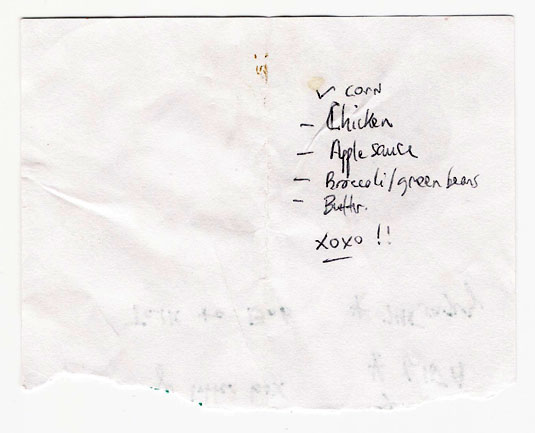 ✓ corn
- Chicken
- Apple sauce
- Broccoli/green beans
- Butter.
xoxo !!